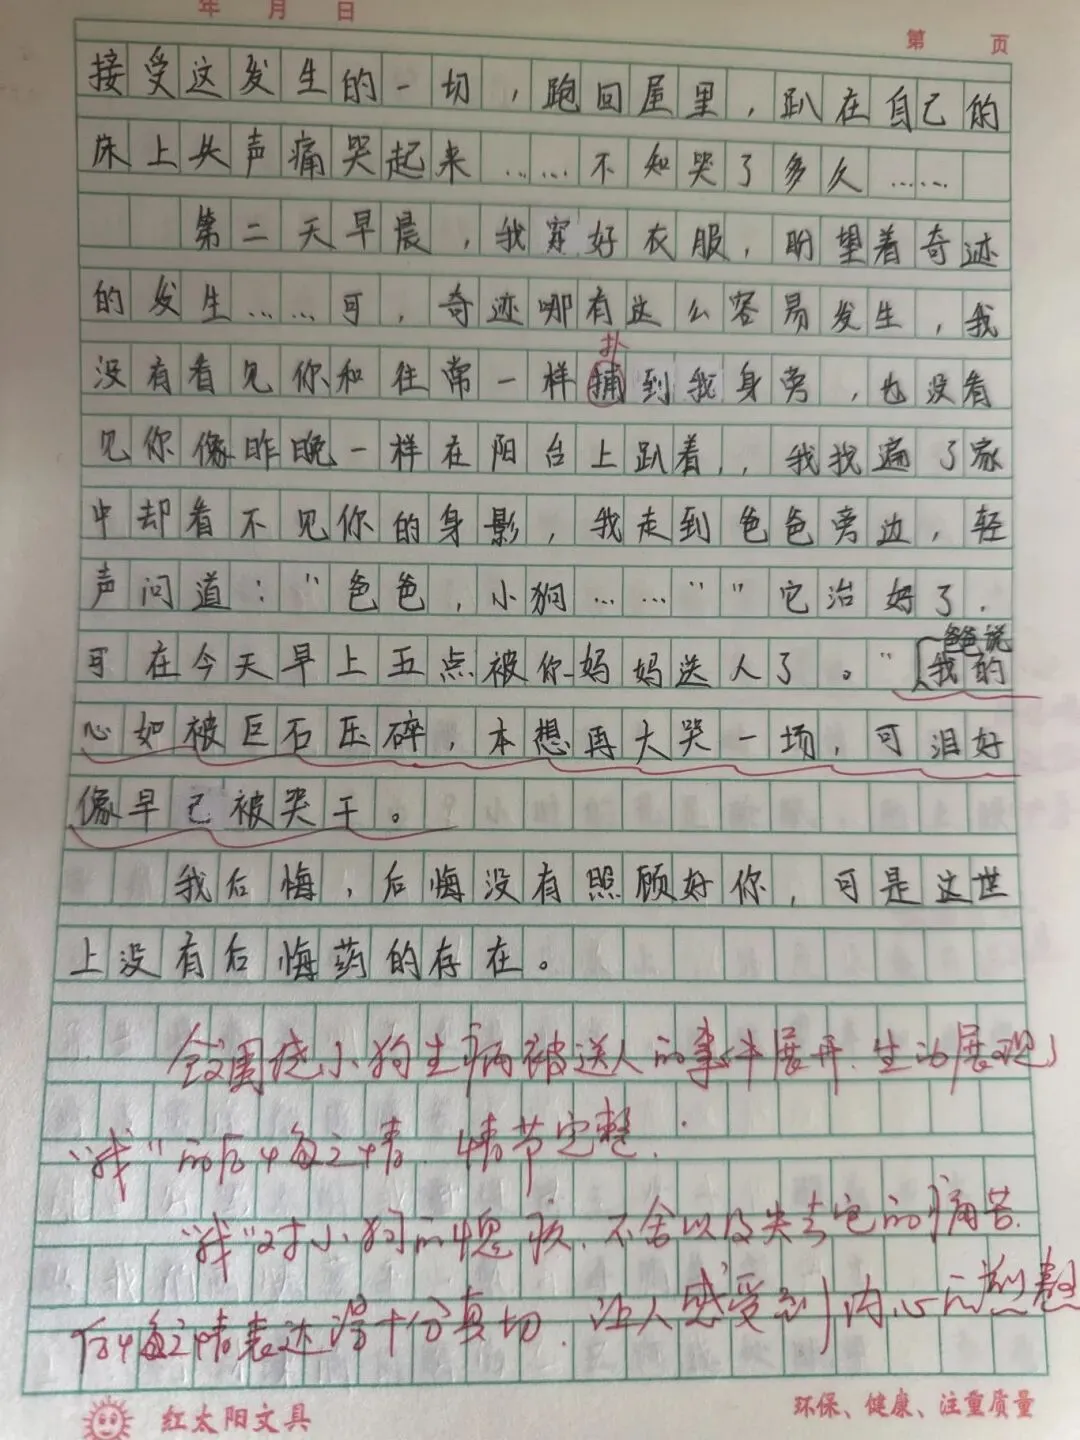 年 月 日
第 页
接受这发生的一切，跑回屋里，趴在自己的
床上头声痛哭起来……不知哭了多久……
第二天早晨，我穿好衣服，盼望着奇迹
的发生……可，奇迹哪有这么容易发生，我
扑
没有看见你和往常一样捕到我身旁，也没看
见你像昨晚一样在阳台上趴着，，我找遍了家
中却看不见你的身影，我走到爸爸旁边，轻
声问道：“爸爸，小狗……”“它治好了，
爸爸说
可在今天早上五点被你妈妈送人了。”我的
心如被巨石压碎，本想再大哭一场，可泪好
像早已被哭干。
我后悔，后悔没有照顾好你，可是这世
上没有后悔药的存在。
围绕小狗生病被送人的事件展开.生动展现了
“我”的后悔之情.情节完整.
“我”对小狗的愧疚.不舍以及失去它的痛苦.
后悔之情表达得十分真切.让人感受到内心的愁
红太阳文具
环保、健康、注重质量